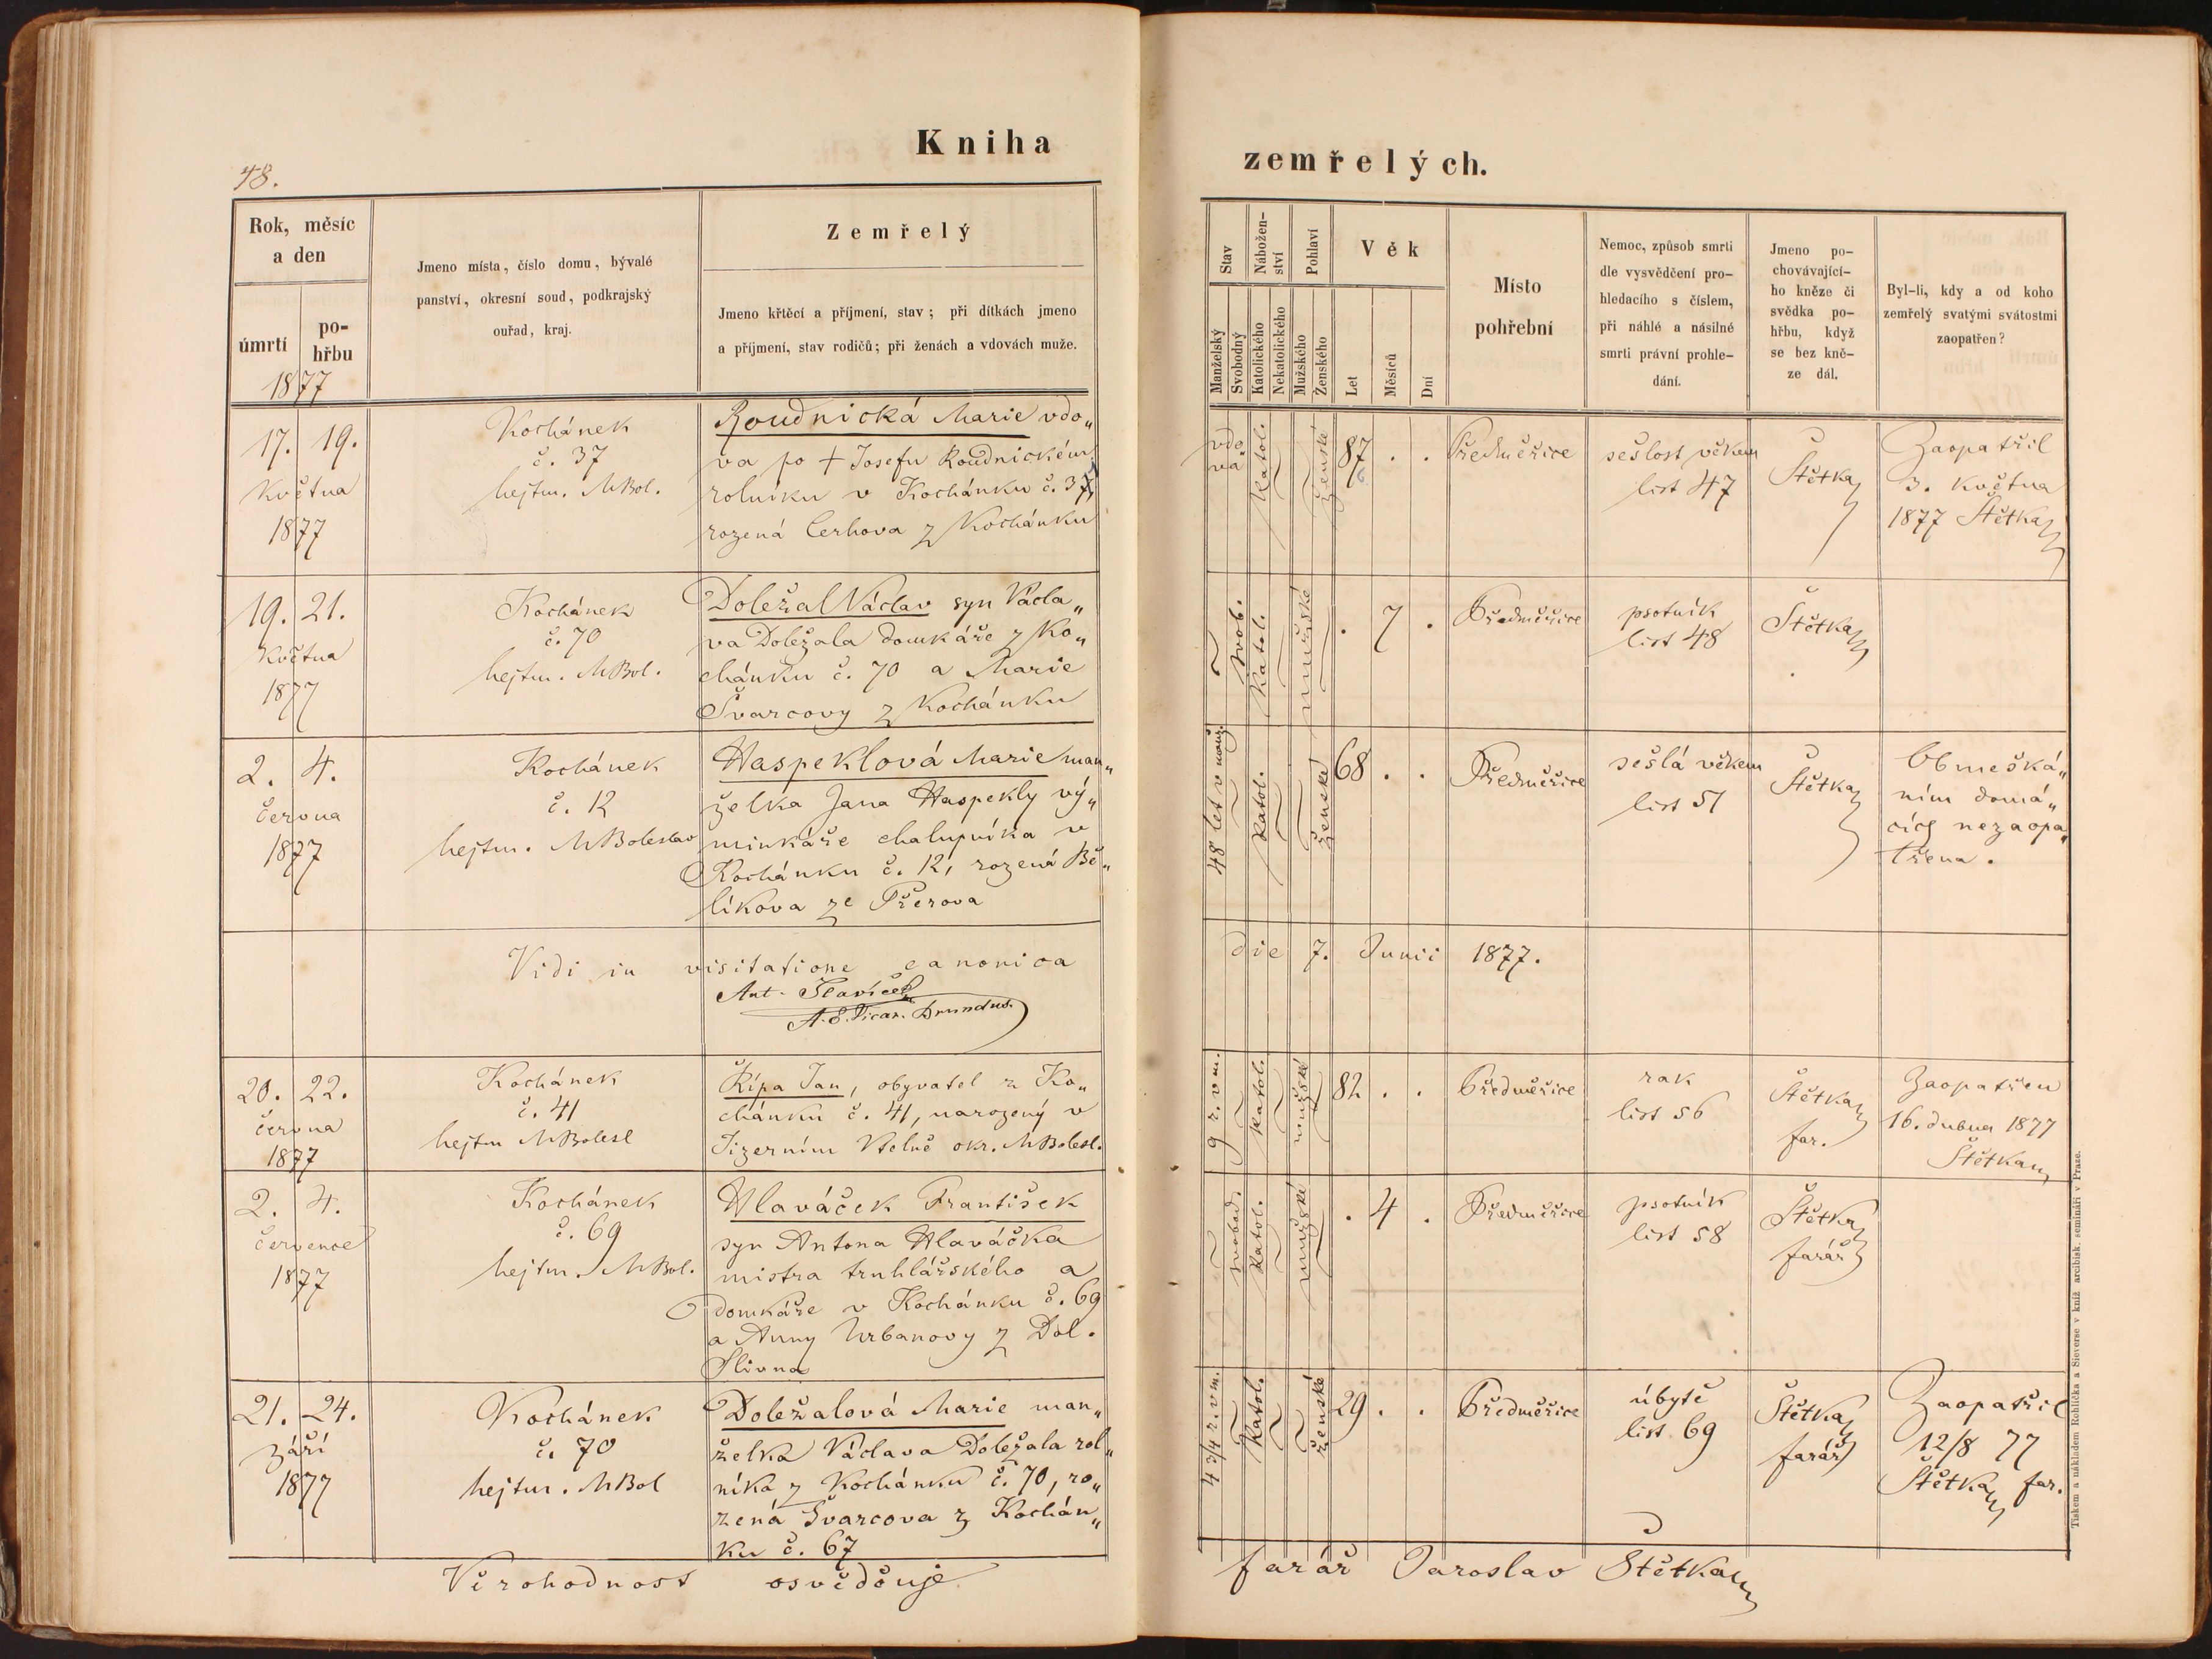 Kniha
48.
Rok, měsíc
a den
úmrtí
po-
hřbu
1877
Jmeno místa, číslo domu, bývalé
panství, okresní soud, podkrajský
ouřad, kraj.
Zemřelý
Jmeno křtěcí a příjmení, stav; při dítkách jmeno
a příjmení, stav rodičů; při ženách a vdovách muže.
17. 19.
května
1877
Kochánek
č. 37
hejtm. MBol.
Roudnická Marie vdo„
va po † Josefu Roudnickém
rolníku v Kochánku č. 37,
rozená Cerhova z Kochánku
19. 21.
května
1877
Kochánek
č. 70
hejtm. MBol.
Doležal Václav syn Václa„
va Doležala domkáře z Ko„
chánku č. 70 a Marie
Švarcovy z Kochánku
2. 4.
června
1877
Kochánek
č. 12
hejtm. MBoleslav
Haspeklová Marie man„
želka Jana Haspekly vý„
minkáře chalupníka v
Kochánku č. 12, rozená Bě„
líkova ze Přerova
Vidi in visitatione canonica
Ant.
A. E. Vicar.
20. 22.
června
1877
Kochánek
č. 41
hejtm MBolesl
Řípa Jan, obyvatel z Ko„
chánku č. 41, narozený v
Jizerním Vtelně okr. MBolesl.
2. 4.
července
1877
Kochánek
č. 69
hejtm. MBol.
Hlaváček František
syn Antona Hlaváčka
mistra truhlářského a
domkáře v Kochánku č. 69
a Anny Urbanovy z Dol.
Slivna
21. 24.
září
1877
Kochánek
č. 70
hejtm. MBol
Doležalová Marie man„
želka Václava Doležala rol„
níka z Kochánku č. 70, ro„
zená Švarcova z Kochán„
ku č. 67
Věrohodnost osvědčuje
zemřelých.
Stav
Manželský
Svobodný
Nábožen-
ství
Katolického
Nekatolického
Pohlaví
Mužského
Ženského
Věk
Let
Měsíců
Dní
Místo
pohřební
Nemoc, způsob smrti
dle vysvědčení pro-
hledacího s číslem,
při náhlé a násilné
smrti právní prohle-
dání.
Jmeno po-
chovávající-
ho kněze či
svědka po-
hřbu, když
se bez kně-
ze dál.
Byl-li, kdy a od koho
zemřelý svatými svátostmi
zaopatřen?
vdo„
va
katol.
ženské
87 . .
Předměřice
sešlost věkem
list 47
Štětka
Zaopatřil
3. května
1877 Štětka
svob.
katol.
mužské
. 7 .
Předměřice
psotník
list 48
Štětka
48 let v manž.
katol.
ženské
68 . .
Předměřice
sešlá věkem
list 51
Štětka
Obmešká„
ním domá„
cích nezaopa„
třena.
die 7. Junii 1877.
9 r. v m.
katol.
mužské
82 . .
Předměřice
rak
list 56
Štětka
far.
Zaopatřen
16. dubna 1877
Štětka
svobod.
katol.
mužské
. 4 .
Předměřice
psotník
list 58
Štětka
farář
4 3/4 r. v m.
katol.
ženské
29 . .
Předměřice
úbytě
list 69
Štětka
farář
Zaopatřil
12/8 77
Štětka far.
farář Jaroslav Štětka
Tiskem a nákladem Rohlíčka a Sieverse v kníž arcibisk. semináři v Praze.